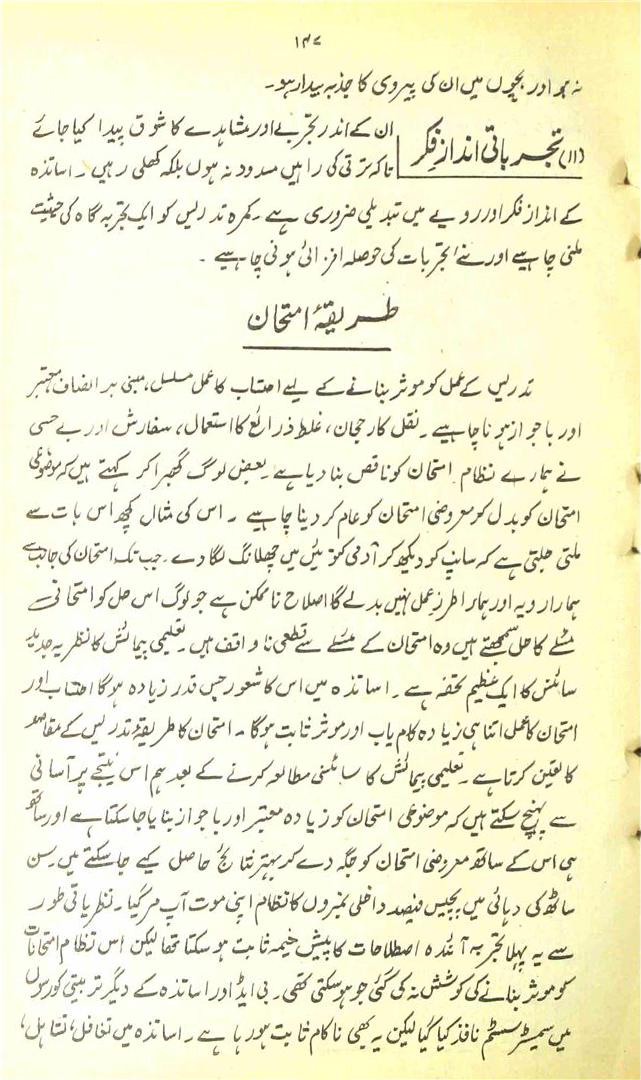 ۱۴۷
نہ ہو اور بچوں میں ان کی پیروی کا جذبہ بیدار ہو۔
(۱۱) تجرباتی اندازِ فکر
ان کے اندر تجربے اور مشاہدے کا شوق پیدا کیا جائے
تاکہ ترقی کی راہیں مسدود نہ ہوں بلکہ کھلی رہیں۔ اساتذہ
کے اندازِ فکر اور رویے میں تبدیلی ضروری ہے۔ کمرہ تدریس کو ایک تجربہ گاہ کی حیثیت
ملنی چاہیے اور نئے تجربات کی حوصلہ افزائی ہونی چاہیے۔
طریقۂ امتحان
تدریس کے عمل کو موثر بنانے کے لیے احتساب کا عمل مسلسل، مبنی بر انصاف، معتبر
اور باجواز ہونا چاہیے۔ نقل کا رجحان، غلط ذرائع کا استعمال، سفارش اور بے حسی
نے ہمارے نظام امتحان کو ناقص بنا دیا ہے۔ بعض لوگ گھبرا کر کہتے ہیں کہ موضوعی
امتحان کو بدل کو معروضی امتحان کو عام کر دینا چاہیے۔ اس کی مثال کچھ اس بات سے
ملتی جلتی ہے کہ سانپ کو دیکھ کر آدمی کنوئیں میں چھلانگ لگا دے۔ جب تک امتحان کی جانب سے
ہمارا رویہ اور ہمارا طرزِ عمل نہیں بدلے گا اصلاح ناممکن ہے جو لوگ اس حل کو امتحانی
مسئلے کا حل سمجھتے ہیں وہ امتحان کے مسئلے سے قطعی ناواقف ہیں۔ تعلیمی پیمائش کا نظریہ جدید
سائنس کا ایک عظیم تحفہ ہے۔ اساتذہ میں اس کا شعور جس قدر زیادہ ہوگا احتساب اور
امتحان کا عمل اتنا ہی زیادہ کام یاب اور موثر ثابت ہوگا۔ امتحان کا طریقۂ تدریس کے مقاصد
کا تعین کرتا ہے۔ تعلیمی پیمائش کا سائنسی مطالعہ کرنے کے بعد ہم اس نتیجے پر آسانی
سے پہنچ سکتے ہیں کہ موضوعی امتحان کو زیادہ معتبر اور باجواز بنایا جا سکتا ہے اور ساتھ
ہی اس کے ساتھ معروضی امتحان کو جگہ دے کر بہتر نتائج حاصل کیے جا سکتے ہیں۔ سن
ساٹھ کی دہائی میں پچیس فیصد داخلی نمبروں کا نظام اپنی موت آپ مر گیا۔ نظریاتی طور
سے یہ پہلا تجربہ آئندہ اصطلاحات کا پیش خیمہ ثابت ہو سکتا تھا لیکن اس نظام امتحانات
کو موثر بنانے کی کوشش نہ کی گئی جو ہو سکتی تھی۔ بی ایڈ اور اساتذہ کے دیگر تربیتی کورسوں
میں سمیسٹر سسٹم نافذ کیا گیا لیکن یہ بھی ناکام ثابت ہو رہا ہے۔ اساتذہ میں تغافل، تساہل،